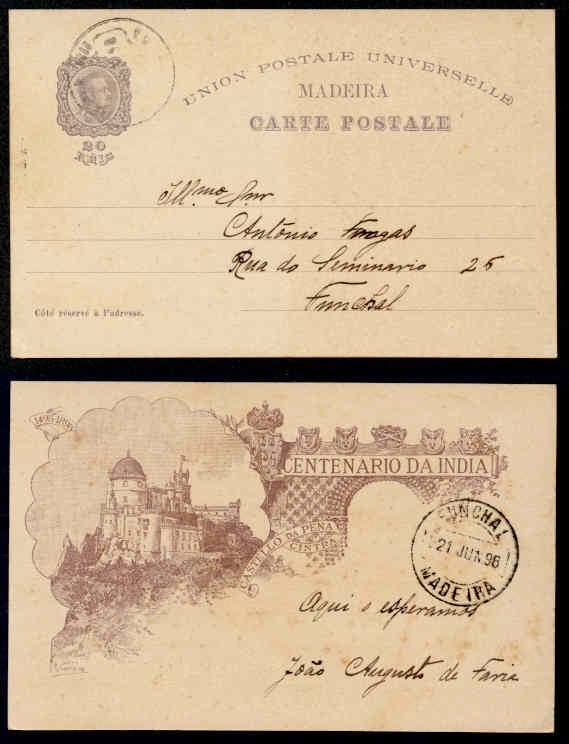 UNION POSTALE UNIVERSELLE
MADEIRA
CARTE POSTALE
20
RÉIS
Ill.mo Snr
António Fragas
Rua do Seminario 25
Funchal
Côté réservé à l'adresse.
1498-1898
CENTENARIO DA INDIA
CASTELLO DA PENA
CINTRA
FUNCHAL
21 JUN 96
MADEIRA
Aqui o esperamos
João Augusto de Faria